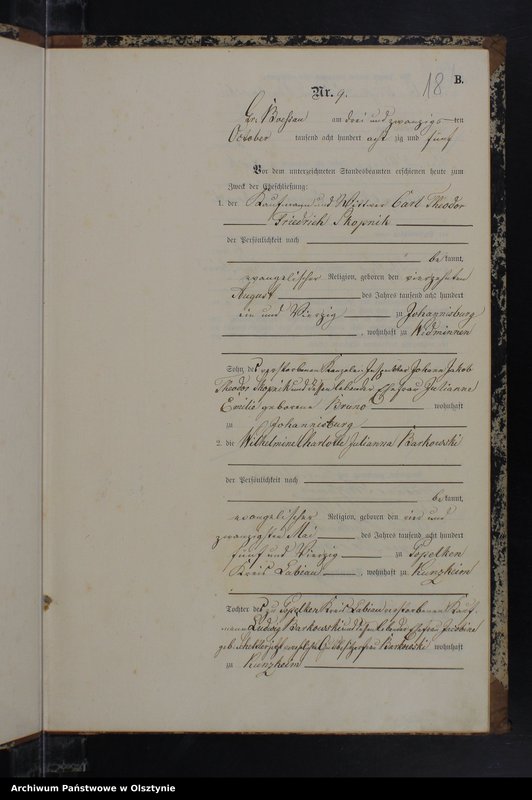 18 B.
Nr. 9.
Gr. Boessau am drei und zwanzigs-ten
October tausend acht hundert acht zig und fünf
Vor dem unterzeichneten Standesbeamten erschienen heute zum
Zweck der Eheschließung:
1. der Kaufmann und Wittwer Carl Theodor
Friedrich Skopnik
der Persönlichkeit nach
be kannt,
evangelischer Religion, geboren den vierzehnten
August des Jahres tausend acht hundert
ein und Vierzig zu Johannisburg
, wohnhaft zu Widminnen
Sohn des verstorbenen Kanzlei Johann Jakob
Theodor Skopnik und dessen lebender Ehefrau Julianne
Emilie geborene Bruno wohnhaft
zu Johannisburg
2. die Wilhelmine Charlotte Julianna Barkowski
der Persönlichkeit nach
be kannt,
evangelischer Religion, geboren den vier und
zwanzigsten Mai des Jahres tausend acht hundert
fünf und Vierzig zu Popelken
Kreis Labiau, wohnhaft zu Kunzkeim
Tochter des zu Popelken Kreis Labiau verstorbenen Kauf-
mann Ludwig Barkowski und dessen lebender Ehefrau
geb. Barkowski wohnhaft
zu Kunzkeim
Archiwum Państwowe w Olsztynie